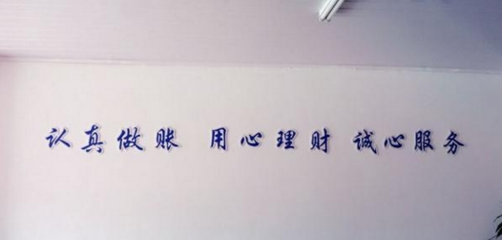 认真做账 用心理财 诚心服务